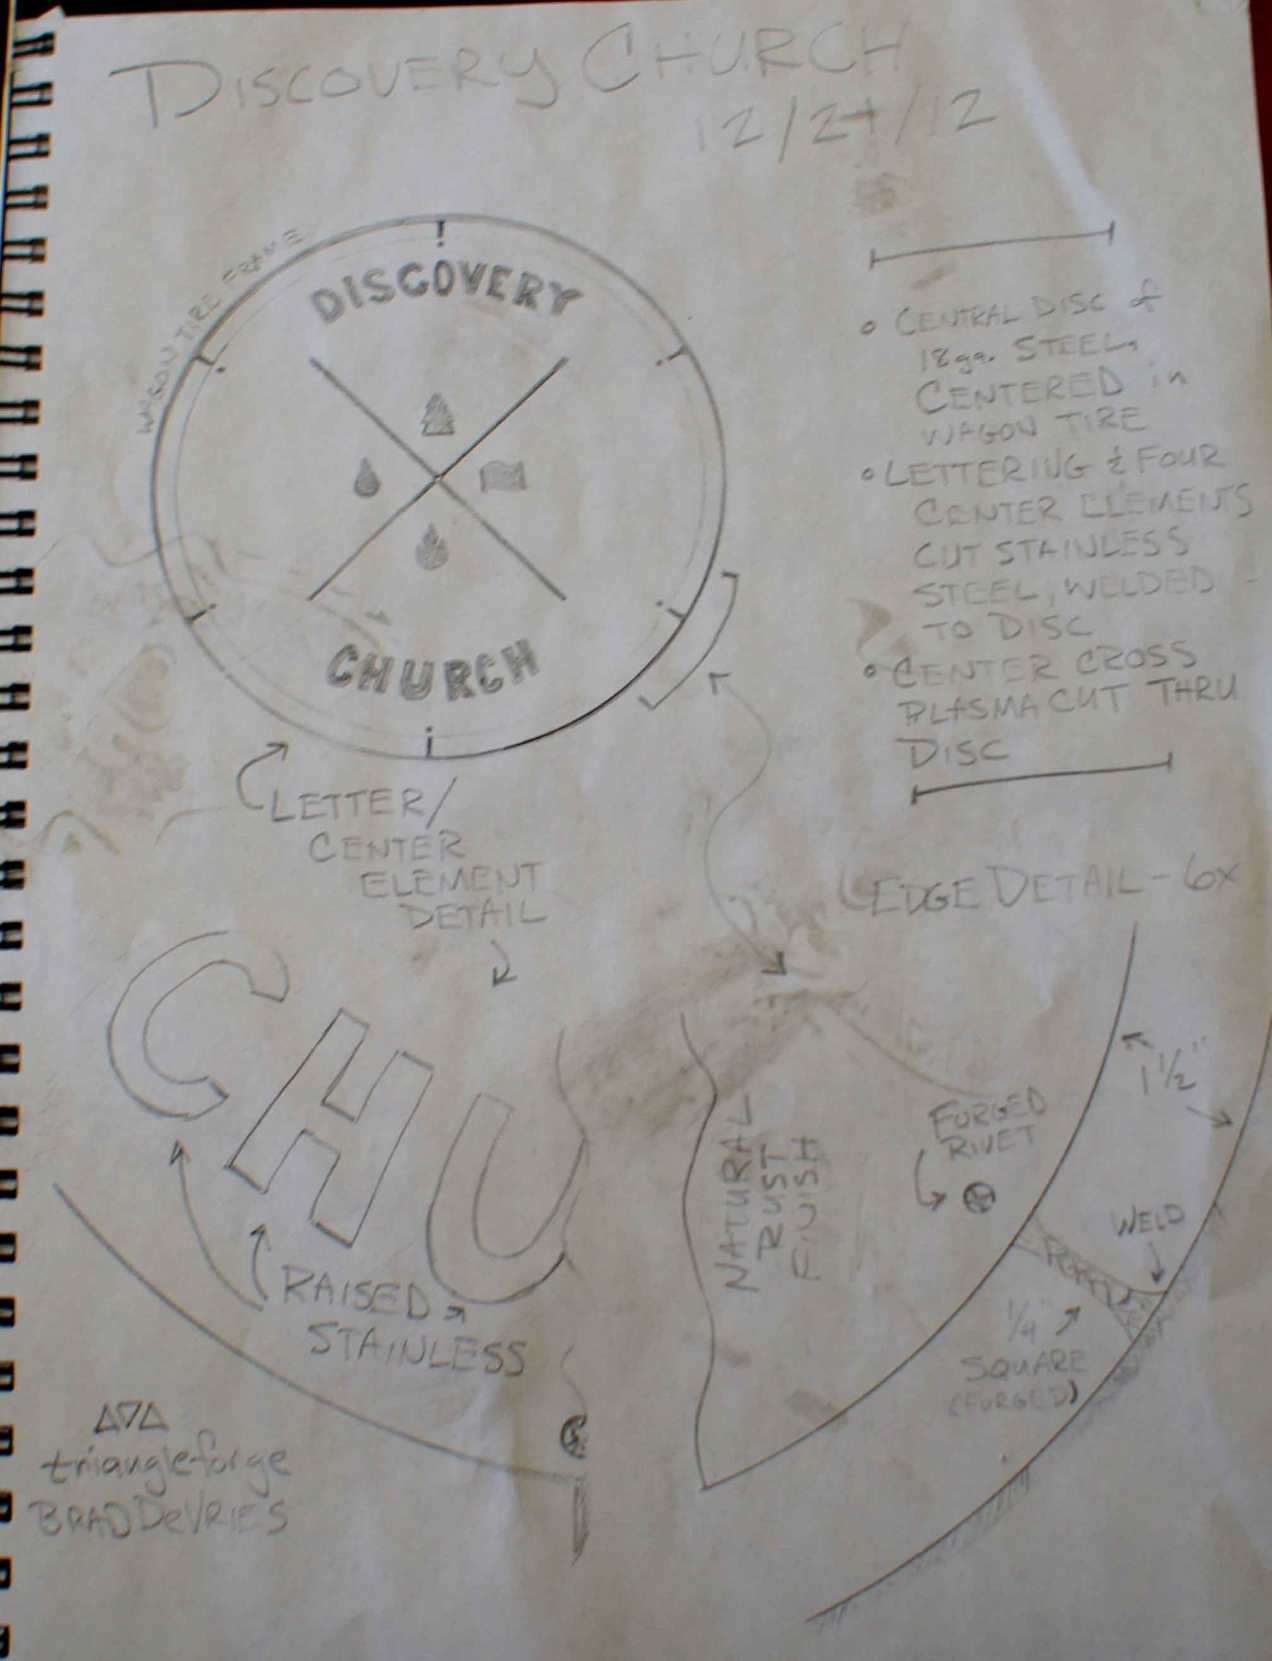 DISCOVERY CHURCH
12/21/12
WAGON TIRE FRAME
DISCOVERY
CHURCH
• CENTRAL DISC of
18 ga. STEEL,
CENTERED in
WAGON TIRE
• LETTERING & FOUR
CENTER ELEMENTS
CUT STAINLESS
STEEL, WELDED
TO DISC
• CENTER CROSS
PLASMA CUT THRU
DISC
LETTER/
CENTER
ELEMENT
DETAIL
EDGE DETAIL - 6x
CHU
RAISED
STAINLESS
NATURAL
RUST
FINISH
FORGED
RIVET
1 1/2"
WELD
1/4"
SQUARE
(FORGED)
triangleforge
BRAD DeVRIES